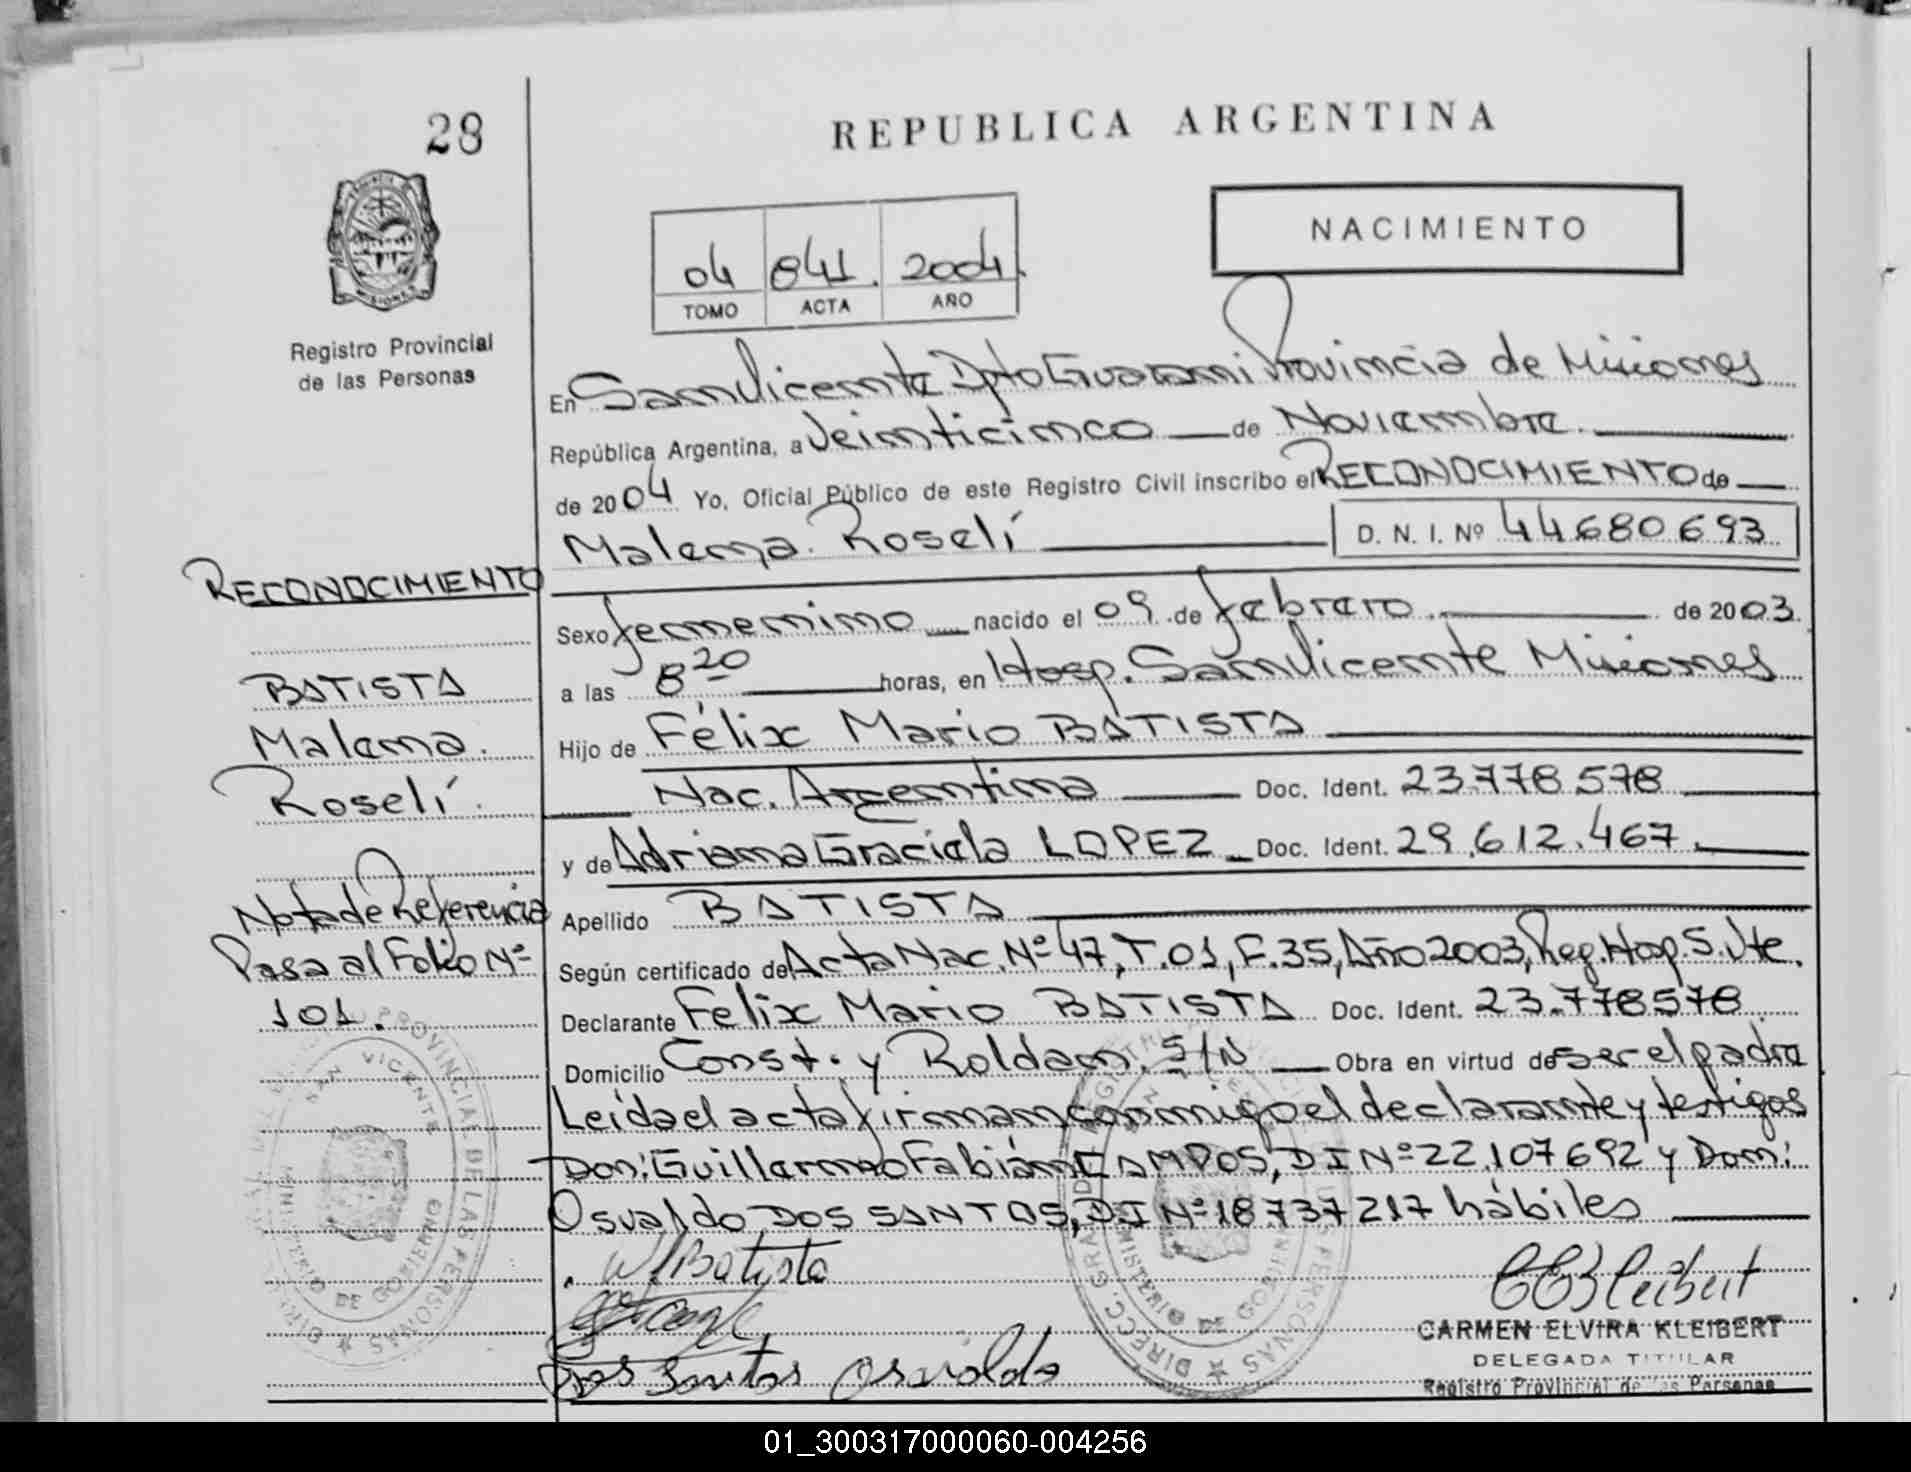 28
REPUBLICA ARGENTINA
NACIMIENTO
04 841. 2004.
TOMO ACTA AÑO
MISIONES
Registro Provincial
de las Personas
En San Vicente Dpto Guarani Provincia de Misiones
República Argentina, a Veinticinco de Noviembre.
de 2004 Yo, Oficial Público de este Registro Civil inscribo el RECONOCIMIENTO de
Malena Roselí D. N. I. Nº 44680693
RECONOCIMIENTO
Sexo femenino nacido el 09 de febrero de 2003.
BATISTA
a las 8 20 horas, en Hosp. San Vicente Misiones
Malena
Hijo de Félix Mario BATISTA
Roselí.
Nac. Argentina Doc. Ident. 23.778.578
y de Adriana Graciela LOPEZ Doc. Ident. 29.612.467
Nota de Referencia
Apellido BATISTA
Pasa al Folio Nº
Según certificado de Acta Nac. Nº 47, T.01, F.35, Año 2003, Reg. Hosp. S. Vte.
101.
Declarante Felix Mario BATISTA Doc. Ident. 23.778578
Domicilio Const. y Roldan S/N Obra en virtud de ser el padre
Leída el acta firman conmigo el declarante y testigos
Don: Guillermo Fabián CAMPOS, DI Nº 22.107692 y Don:
Osvaldo DOS SANTOS, DI Nº 18737217 hábiles
Batista
Dos Santos Osvaldo
CE Kleibert
CARMEN ELVIRA KLEIBERT
DELEGADA TITULAR
Registro Provincial de las Personas
PROVINCIAL DE LAS PERSONAS
SAN VICENTE
MINISTERIO DE GOBIERNO
01_300317000060-004256